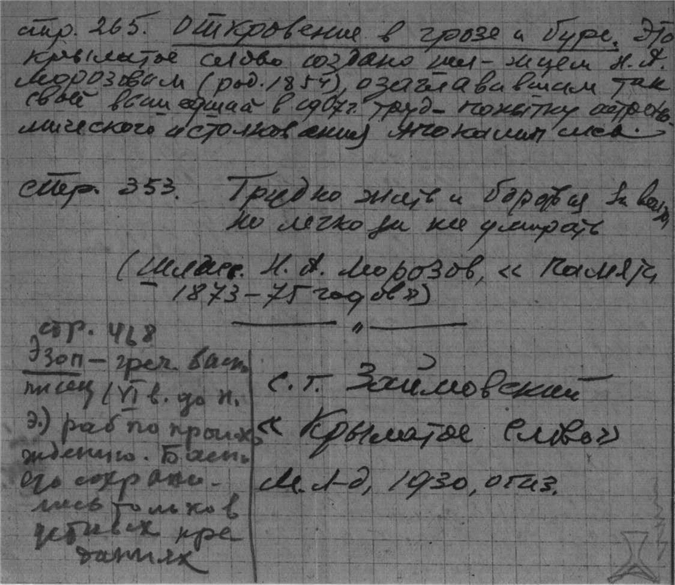 стр. 265. Откровение в грозе и буре. Это
крылатое слово создано шл-жцем Н.А.
Морозовым (род. 1854), озаглавившим так
свой вышедший в 1907г. труд - попытку астроно-
мического истолкования Апокалипсиса.
стр. 353. Трудно жить и бороться за
но легко за нее умирать
(Н.А. Морозов, « Памяти
1873-75 годов»)
стр. 468
Эзоп - греч. басно
писец (VI в. до н.
э.) раб по происхо
ждению. Басни
его сохрани-
лись только в
устных пре
даниях
С.Г. Займовский
« Крылатое слово»
М.Л-д, 1930, огиз.